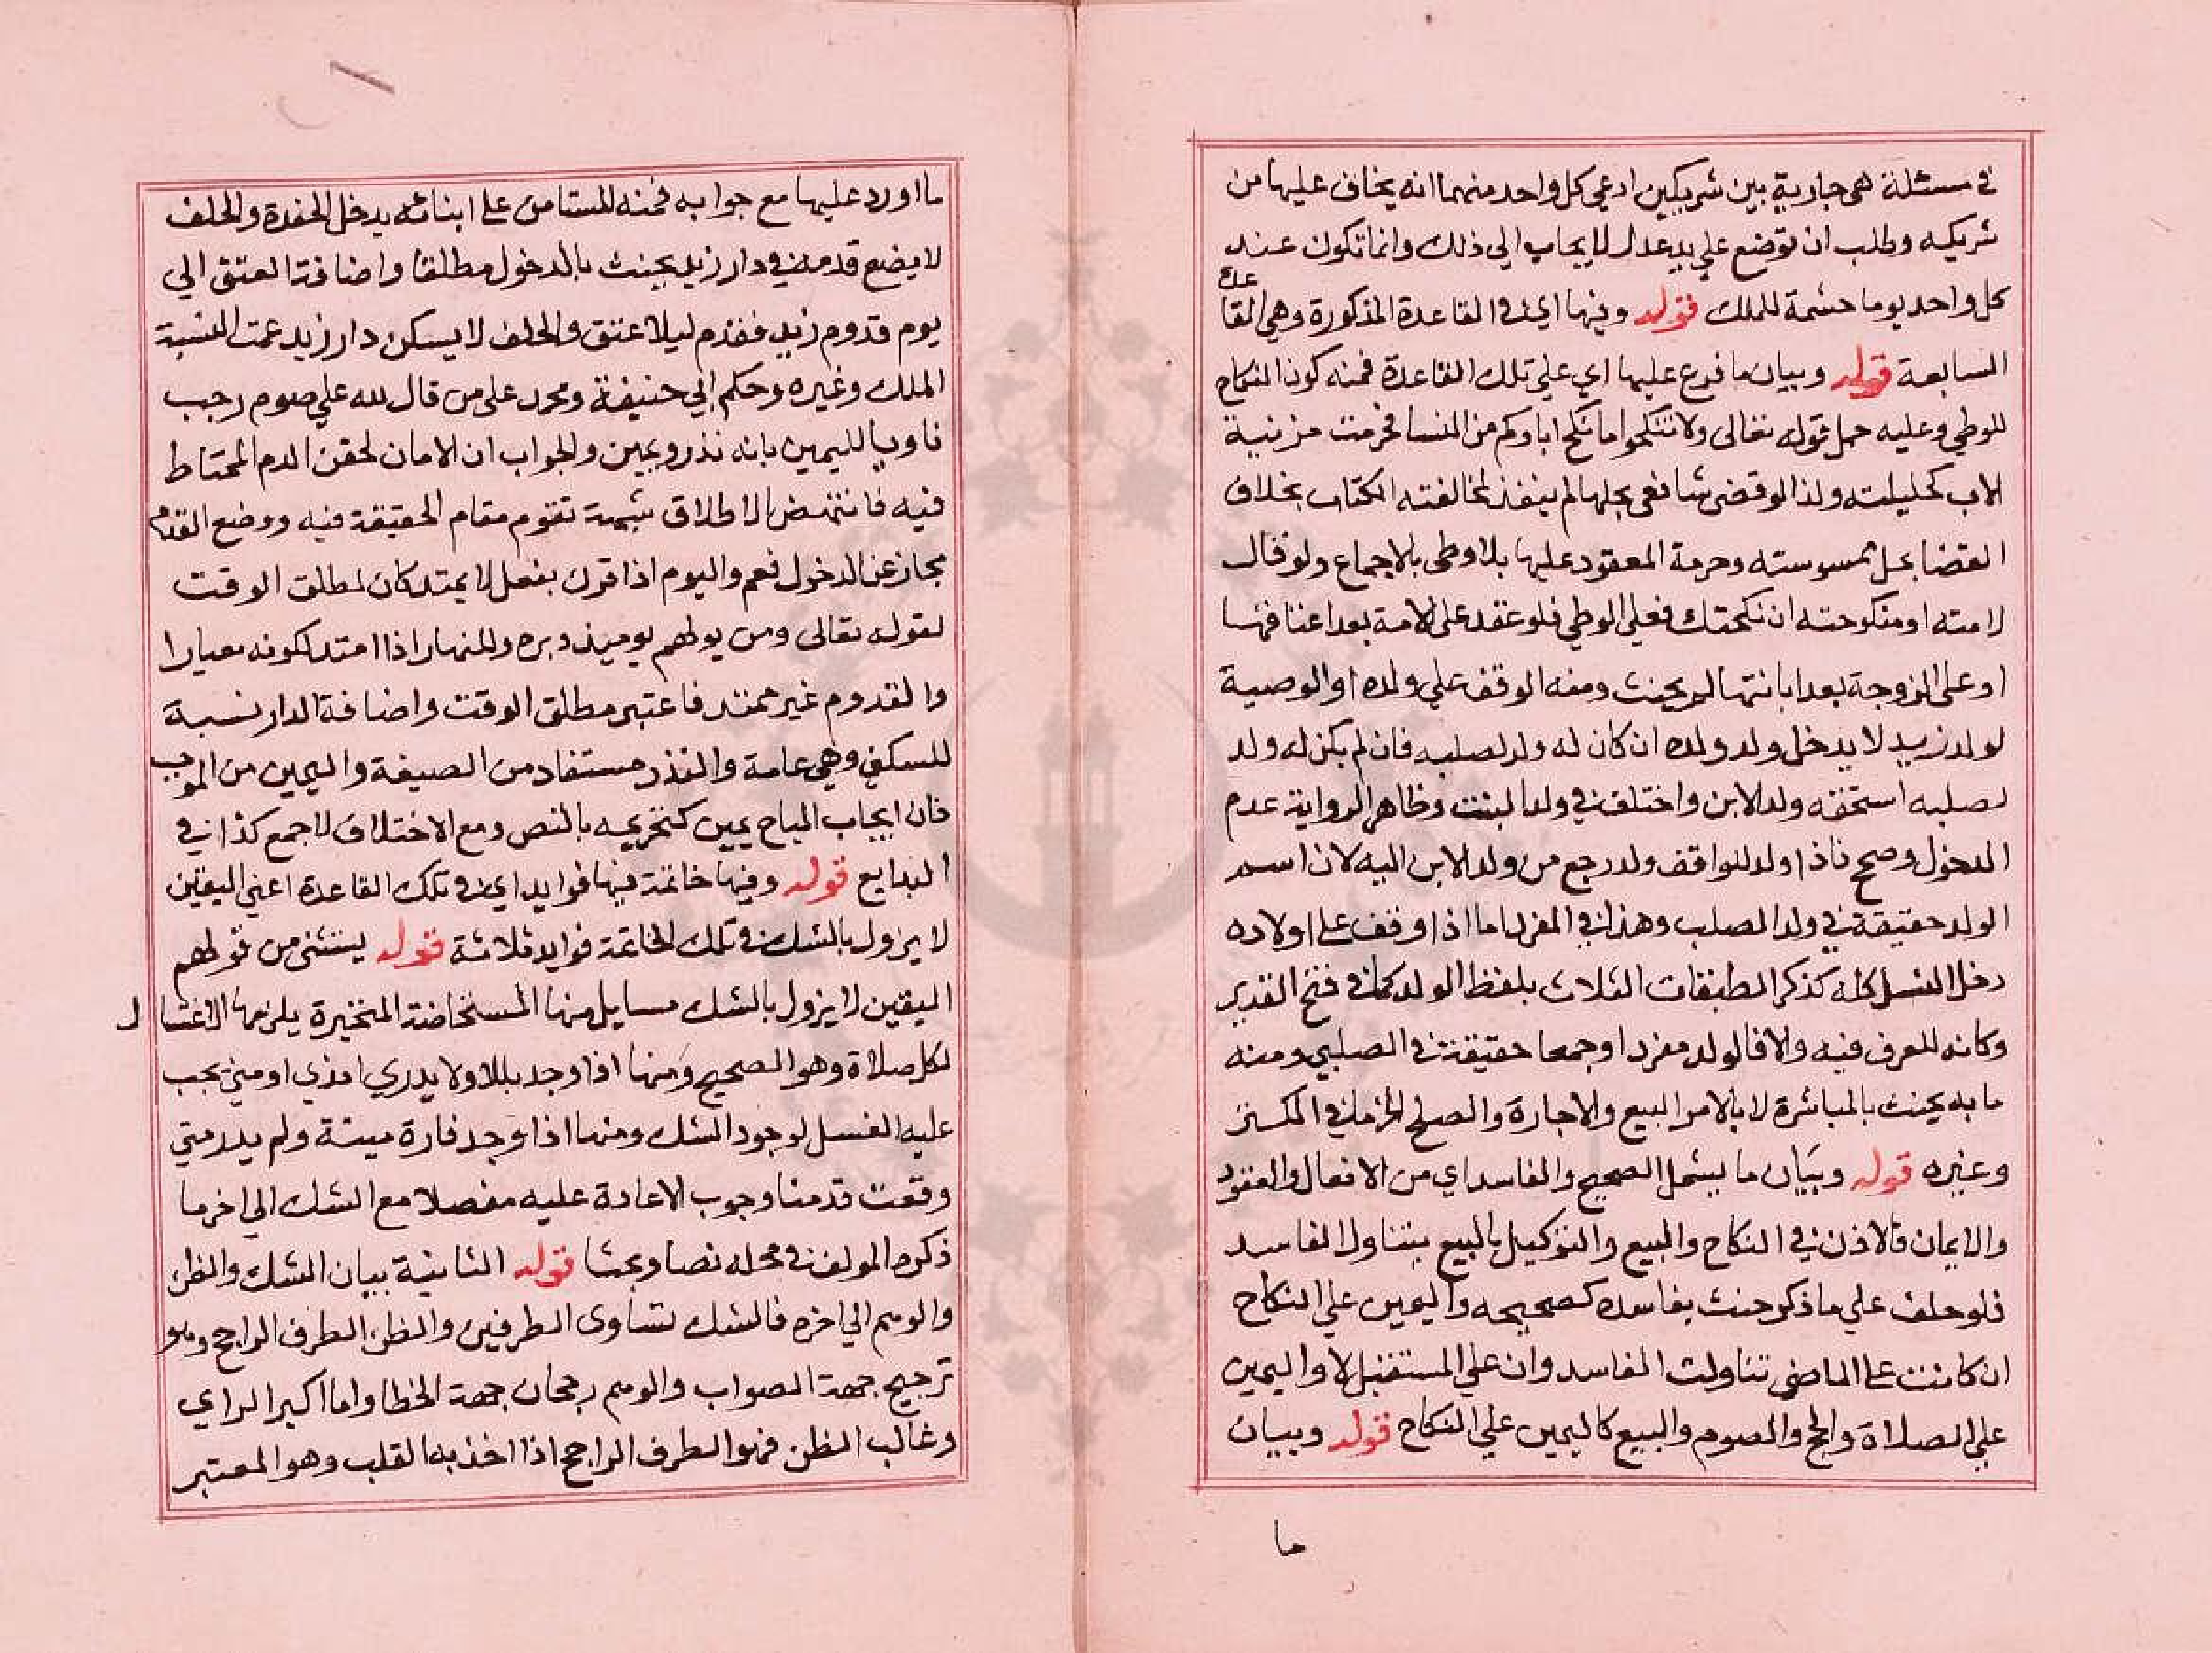 في مسئلة هي جارية بين شريكين ادعي كل واحد منهما انه يخاف عليها من
شريكه وطلب ان توضع علي يد عدل لا يجاب الي ذلك وانما تكون عند
كل واحد يوما حشمة للملك قوله وفيها اي في القاعدة المذكورة وهي القاعدة
السابعة قوله وبيان ما فرع عليها اي علي تلك القاعدة فمنه كون النكاح
للوطي وعليه حمل قوله تعالى ولا تنكحوا ما نكح اباوكم من النسا فحرمت مزنية
الاب كحليلته ولذا لو قضى شافعي بحلها لم ينفذ لمخالفته الكتاب بخلاف
القضا بحل ممسوسته وحرمة المعقود عليها بلا وطى بالاجماع ولو قال
لامته او منكوحته ان نكحتك فعلي الوطي فلو عقد على الامة بعد اعتاقها
او على الزوجة بعد ابانتها لم يحنث ومنه الوقف علي ولده او الوصية
لولد زيد لا يدخل ولد ولده ان كان له ولد لصلبه فان لم يكن له ولد
لصلبه استحقه ولد الابن واختلف في ولد البنت وظاهر الرواية عدم
الدخول وصح فاذا ولد للواقف ولد رجع من ولد الابن اليه لان اسم
الولد حقيقة في ولد الصلب وهذا في المفرد اما اذا وقف على اولاده
دخل النسل كله كذكر الطبقات الثلاث بلفظ الولد كما في فتح القدير
وكانه للعرف فيه والا فالولد مفردا وجمعا حقيقة في الصلبي ومنه
ما به يحنث بالمباشرة لا بالامر البيع والاجارة والصلح الخ ما في الكنز
وغيره قوله وبيان ما يشمل الصحيح والفاسد اي من الافعال والعقود
والايمان فالاذن في النكاح والبيع والتوكيل بالبيع يتناول الفاسد
فلو حلف علي ما ذكر حنث بفاسده كصحيحه واليمين علي النكاح
ان كانت على الماضي تناولت الفاسد وان علي المستقبل لا واليمين
علي الصلاة والحج والصوم والبيع كاليمين علي النكاح قوله وبيان
ما
ما اورد عليها مع جوابه فمنه للمستامن على ابنائه يدخل الحفدة والحلف
لا يضع قدمه في دار زيد يحنث بالدخول مطلقا واضافة العتق الي
يوم قدوم زيد فقدم ليلا عتق والحلف لا يسكن دار زيد عمت النسبة
الملك وغيره وحكم ابي حنيفة ومحمد على من قال لله علي صوم رجب
ناويا لليمين بانه نذر ويمين والجواب ان الامان لحقن الدم المحتاط
فيه فانتهض الاطلاق شبهة تقوم مقام الحقيقة فيه ووضع القدم
مجاز عن الدخول فعم واليوم اذا قرن بفعل لا يمتد كان لمطلق الوقت
لقوله تعالى ومن يولهم يوميذ دبره وللنهار اذا امتد لكونه معيارا
والقدوم غير ممتد فاعتبر مطلق الوقت واضافة الدار نسبة
للسكني وهي عامة والنذر مستفاد من الصيغة واليمين من الموجب
فان ايجاب المباح يمين كتحريمه بالنص ومع الاختلاف لا جمع كذا في
البدايع قوله وفيها خاتمة فيها فوايد اي في تلك القاعدة اعني اليقين
لا يزول بالشك في تلك الخاتمة فوايد ثلاثة قوله يستثنى من قولهم
اليقين لا يزول بالشك مسايل منها المستحاضة المتحيرة يلزمها الاغتسال
لكل صلاة وهو الصحيح ومنها اذا وجد بللا ولا يدري امذي او مني يجب
عليه الغسل لوجود الشك ومنها اذا وجد فارة ميتة ولم يدر متي
وقعت قدمنا وجوب الاعادة عليه مفصلا مع الشك الي اخر ما
ذكره المولف في محله نصا وبحثا قوله الثانية بيان الشك والظن
والوهم الي اخره فالشك تساوى الطرفين والظن الطرف الراجح وهو
ترجيح جهة الصواب والوهم رجحان جهة الخطا واما اكبر الراي
وغالب الظن فهو الطرف الراجح اذا اخذ به القلب وهو المعتبر